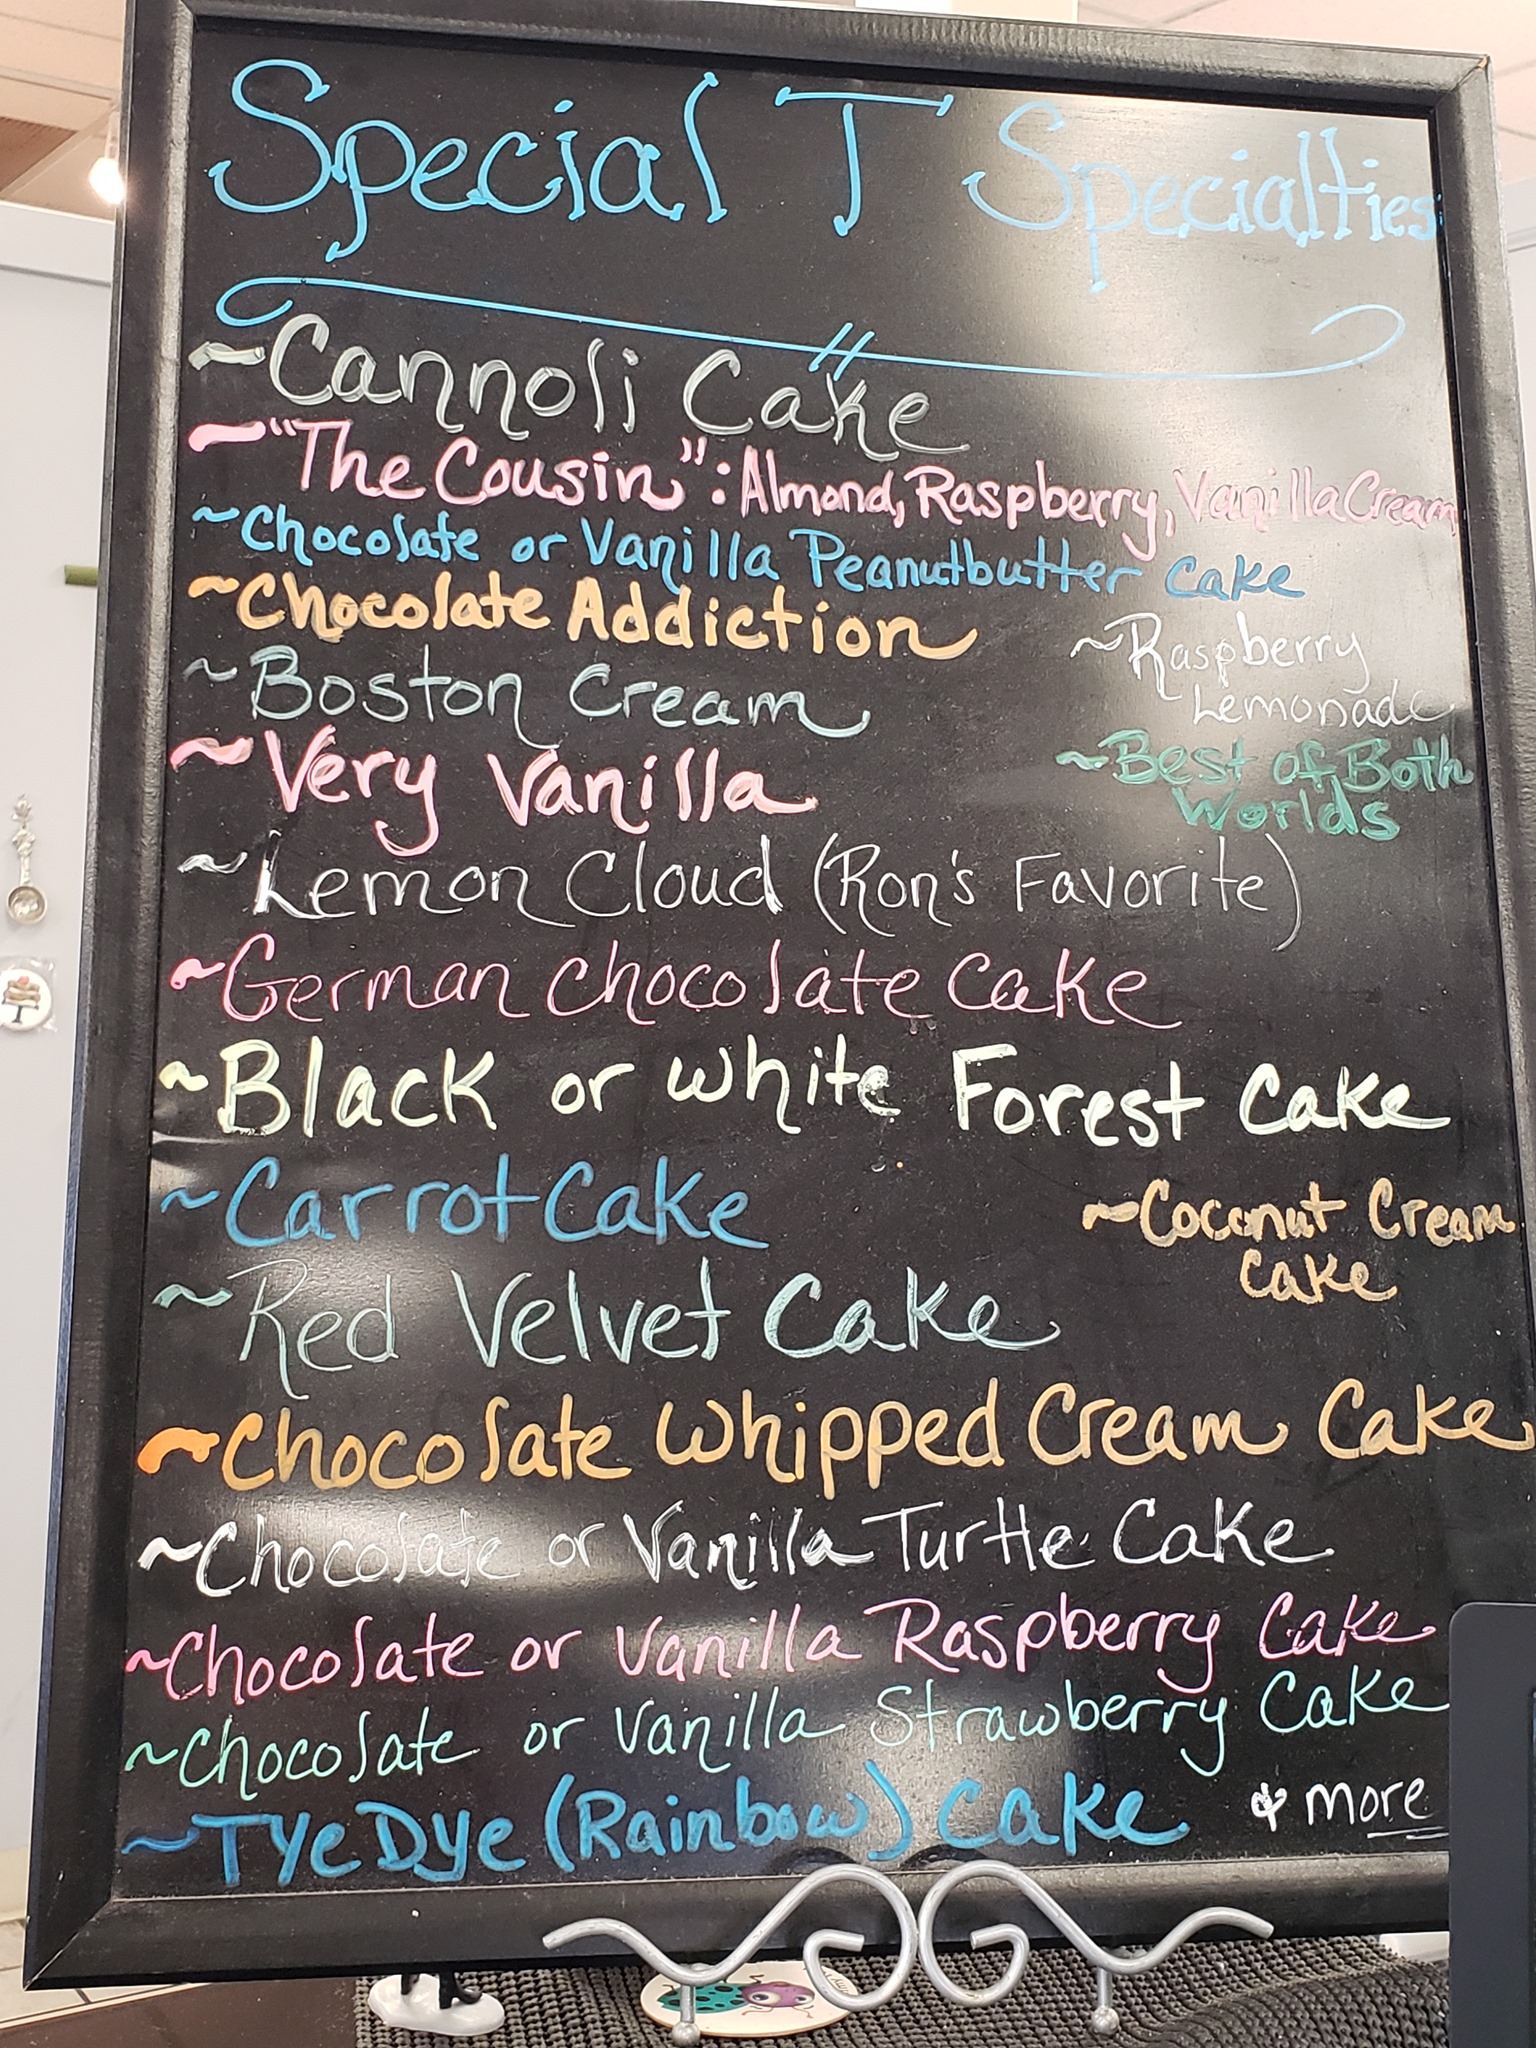 Special T Specialties
~Cannoli Cake
~"The Cousin": Almond, Raspberry, Vanilla Cream
~Chocolate or Vanilla Peanutbutter Cake
~Chocolate Addiction
~Raspberry
Lemonade
~Boston Cream
~Best of Both
Worlds
~Very Vanilla
~Lemon Cloud (Ron's Favorite)
~German Chocolate Cake
~Black or White Forest Cake
~Carrot Cake
~Coconut Cream
Cake
~Red Velvet Cake
~Chocolate Whipped Cream Cake
~Chocolate or Vanilla Turtle Cake
~Chocolate or Vanilla Raspberry Cake
~Chocolate or Vanilla Strawberry Cake
~Tye Dye (Rainbow) Cake
& more